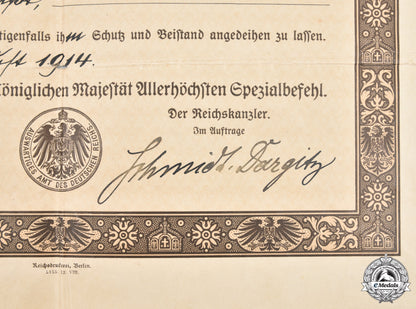 tigenfalls ihm Schutz und Beistand angedeihen zu lassen.
1914.
Königlichen Majestät Allerhöchsten Spezialbefehl.
Der Reichskanzler.
Im Auftrage
AUSWÄRTIGES AMT DES DEUTSCHEN REICHS
Schmidt-Dargitz
Reichsdruckerei, Berlin.